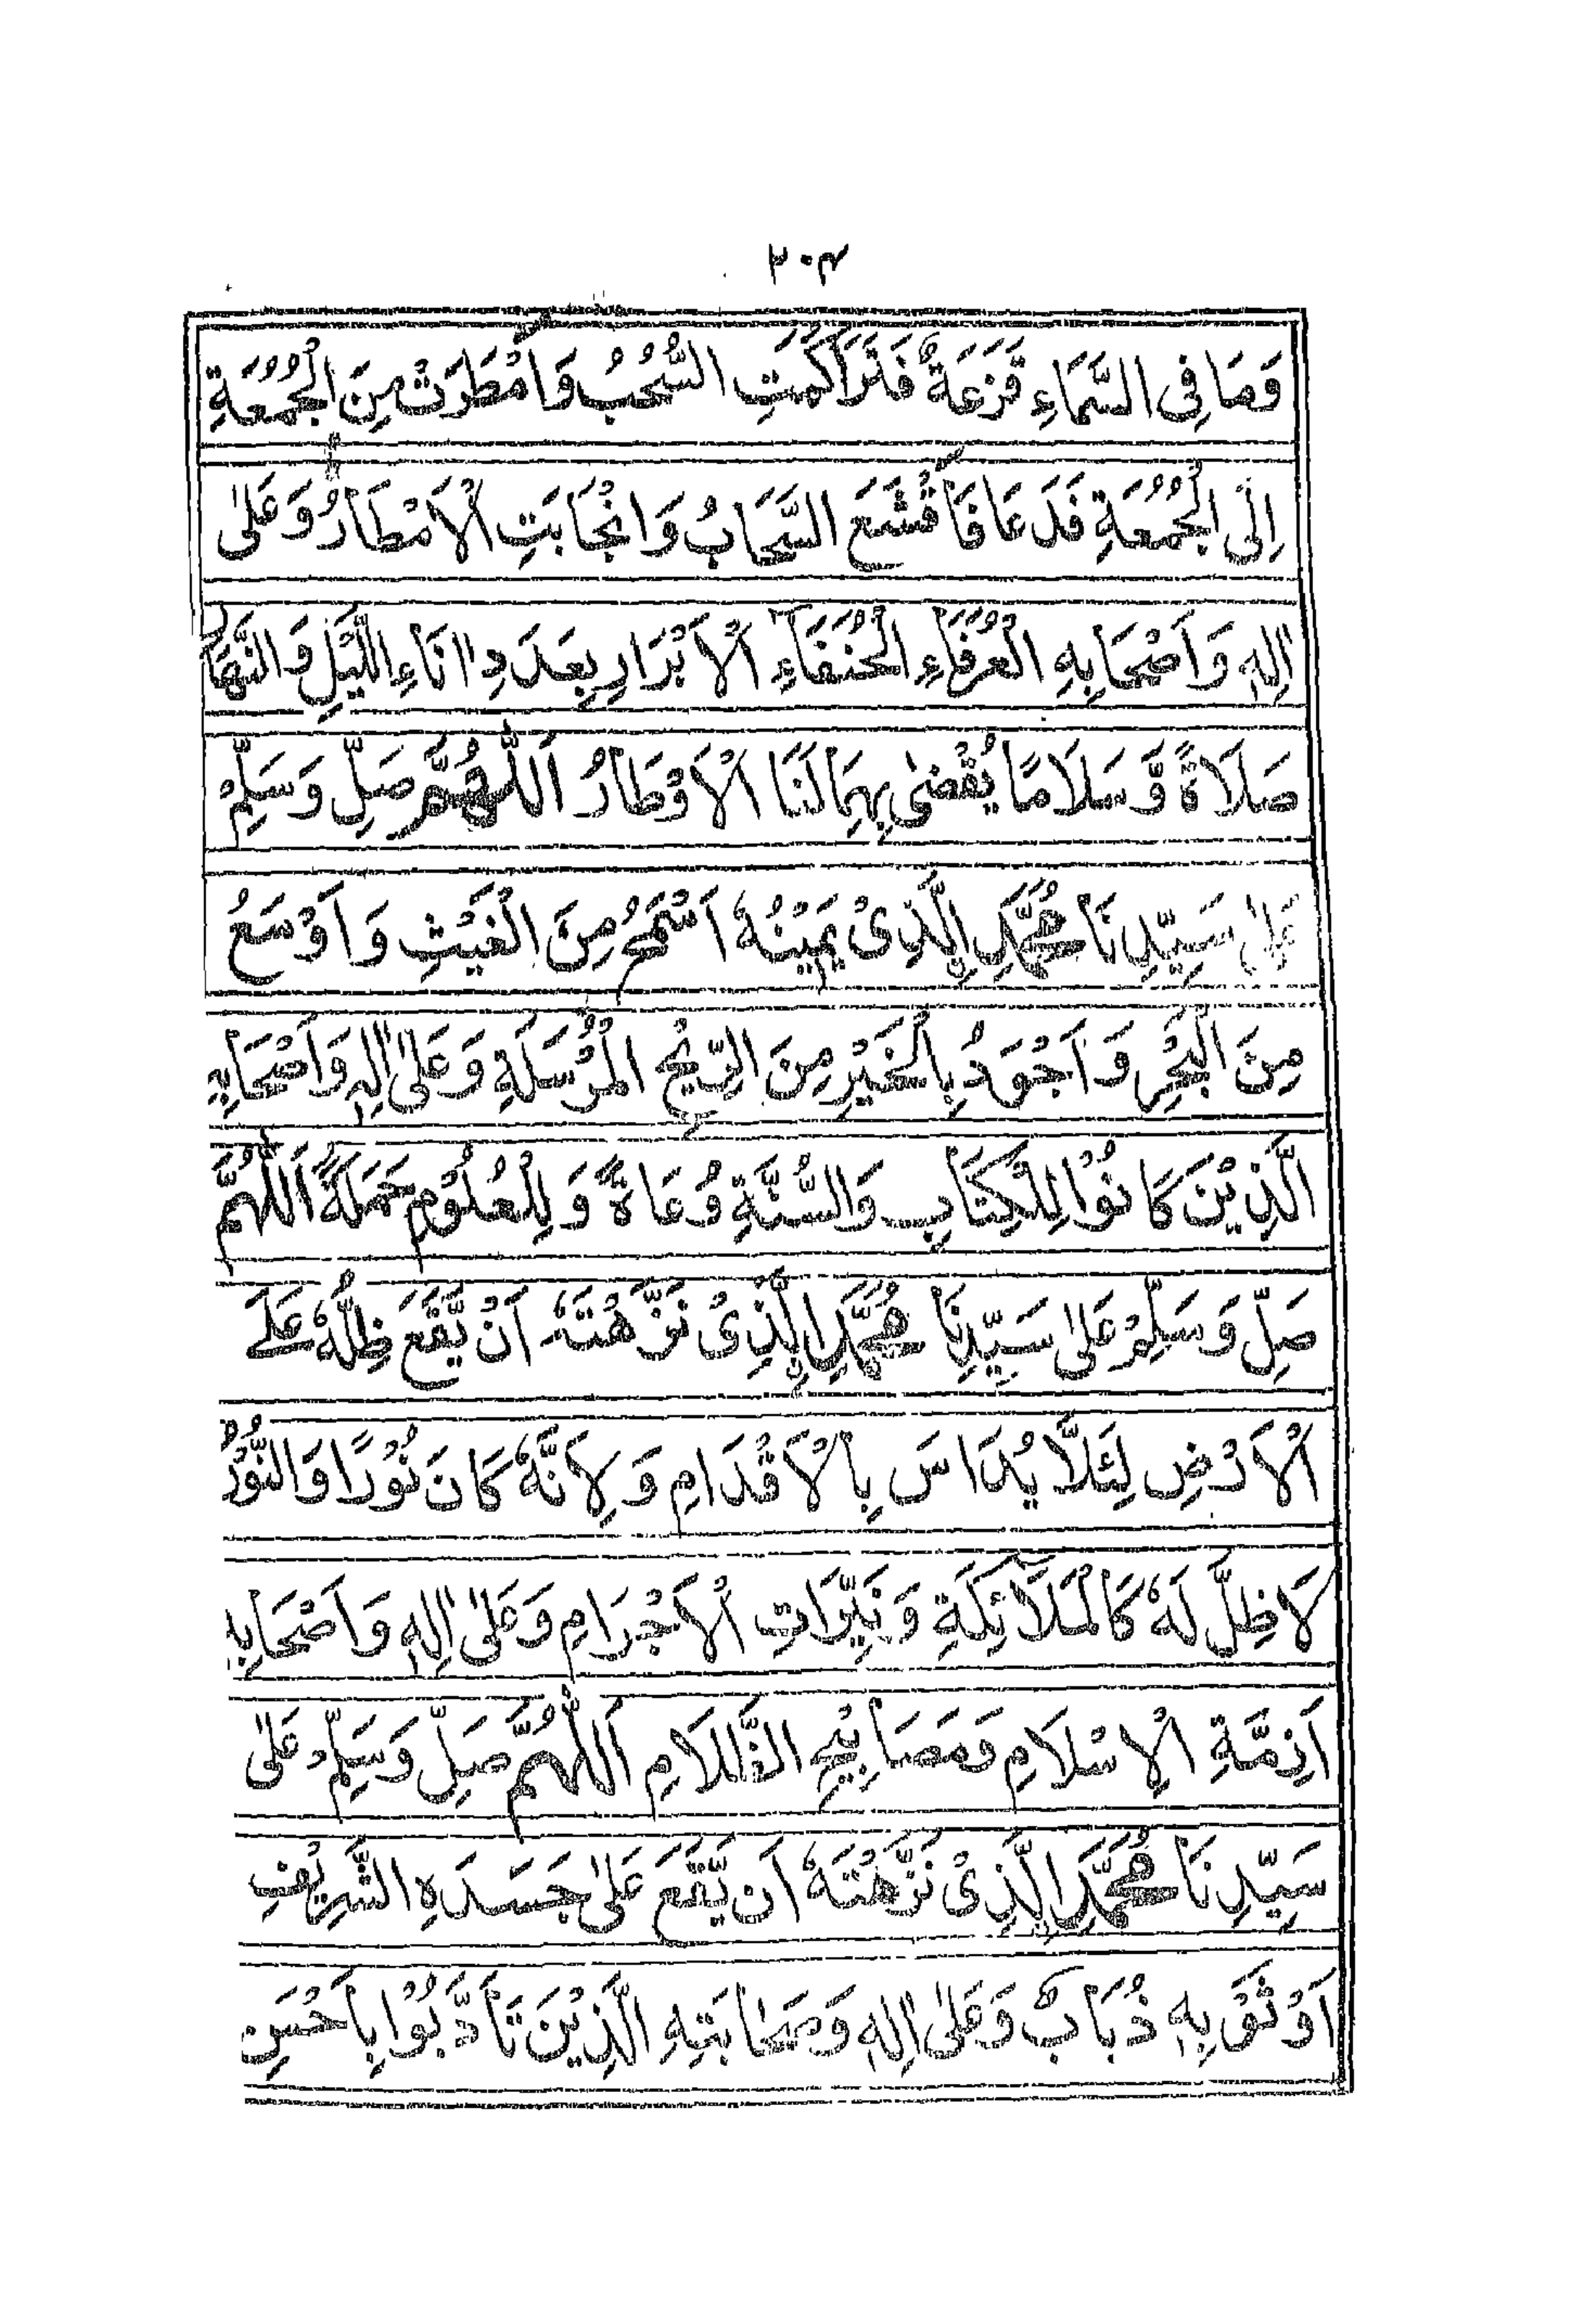 ٣٠٤
وَمَا فِى السَّمَاءِ قَزَعَةٌ فَتَرَاكَمَتِ السُّحُبُ وَامْطَرَتْ مِنَ الْجُمُعَةِ
اِلَى الْجُمُعَةِ فَدَعَا فَاقْشَعَ السَّحَابُ وَانْجَابَتِ الْاَمْطَارُ وَعَلٰى
اٰلِهٖ وَاَصْحَابِهِ الْعُرَفَاءِ الْحُنَفَآءِ الْاَبْرَارِ بِعَدَدِ اٰنَاءِ اللَّيْلِ وَالنَّهَارِ
صَلَاةً وَّسَلَامًا يُقْضٰى بِهِمَا لَنَا الْاَوْطَارُ اَللّٰهُمَّ صَلِّ وَسَلِّمْ
عَلٰى سَيِّدِنَا مُحَمَّدِ اِلَّذِىْ يَمِيْنُهٗ اَسْمَحُ مِنَ الْغَيْثِ وَاَوْسَعُ
مِنَ الْبَحْرِ وَاَجْوَدُ بِالْخَيْرِ مِنَ الرِّيْحِ الْمُرْسَلَةِ وَعَلٰى اٰلِهٖ وَاَصْحَابِهِ
الَّذِيْنَ كَانُوْا لِلْكِتَابِ وَالسُّنَّةِ وُعَاةً وَلِلْعُلُوْمِ حَمَلَةً اَللّٰهُمَّ
صَلِّ وَسَلِّمْ عَلٰى سَيِّدِنَا مُحَمَّدِ اِلَّذِىْ نَزَّهْتَهٗ اَنْ يَّقَعَ ظِلُّهٗ عَلَے
الْاَرْضِ لِئَلَّا يُدَاسَ بِالْاَقْدَامِ وَلِاَنَّهٗ كَانَ نُوْرًا وَالنُّوْرُ
لَا ظِلَّ لَهٗ كَالْمَلَآئِكَةِ وَنَيِّرَاتِ الْاَجْرَامِ وَعَلٰى اٰلِهٖ وَاَصْحَابِهٖ
اَزِمَّةِ الْاِسْلَامِ وَمَصَابِيْحِ الظَّلَامِ اَللّٰهُمَّ صَلِّ وَسَلِّمْ عَلٰى
سَيِّدِنَا مُحَمَّدِ اِلَّذِىْ نَزَّهْتَهٗ اَن يَّقَعَ عَلٰى جَسَدِهِ الشَّرِيْفِ
اَوْ ثَوْبِهٖ ذُبَابٌ وَعَلٰى اٰلِهٖ وَصَحَابَتِهِ الَّذِيْنَ تَاَدَّبُوْا بِاَحْسَنِ